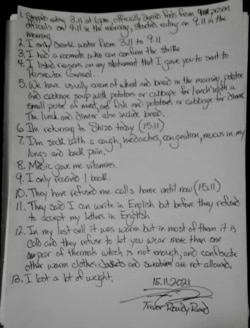 1. Stopped eating 3.11 at 6pm, officially from prison
officials on 9.11 in the morning, started eating on 9.11 in the
morning
2. I only drank water from 3.11 to 9.11
3. I had a roommate who can confirm the strike
4. I hate reagons on my statement that I gave you to sent to
Counsel.
5. We have usually cream of wheat and bread in the morning, potatoe
and cabbage soup with potatoes or cabbage for lunch with a
small piece of meat, and fish and potatoes or cabbage for dinner.
The lunch and dinner also include bread.
6. I'm returning to Shizo today (15.11)
7. I'm sick with a cough, headaches, congestion, mucus in my
lungs and back pain.
8. Medic gave me vitamins.
9. I only received 1 book.
10. They have refused me calls home until now (15.11)
11. They said I can write in English but before they refused
to accept my letters in English
12. In my last cell it was warm but in most of them it is
cold and they refuse to let you wear more than one
pair of thermals which is not enough, and confiscate
other warm clothes. Jackets and sweaters are not allowed.
13. I lost a lot of weight.
15.11.2021
Trevor Rowdy Reed